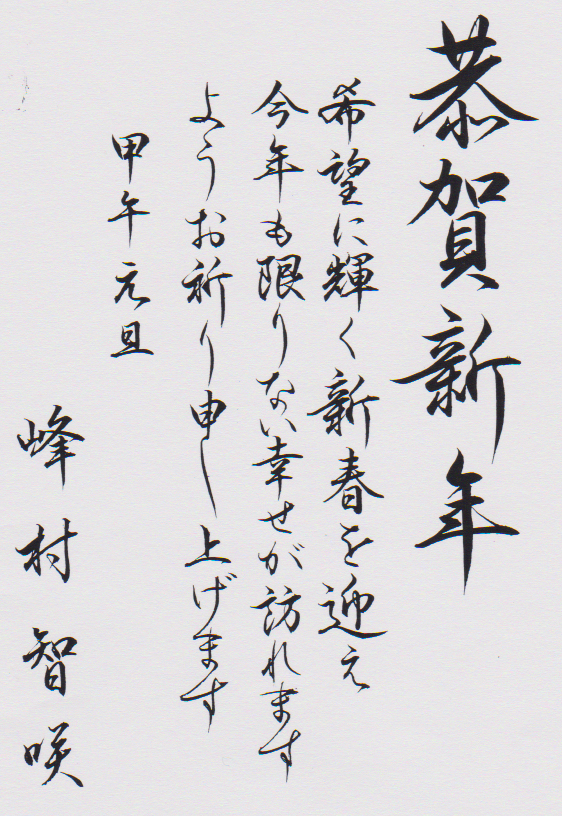 恭賀新年
希望に輝く新春を迎え
今年も限りない幸せが訪れます
ようお祈り申し上げます
甲午元旦
峰村智咲